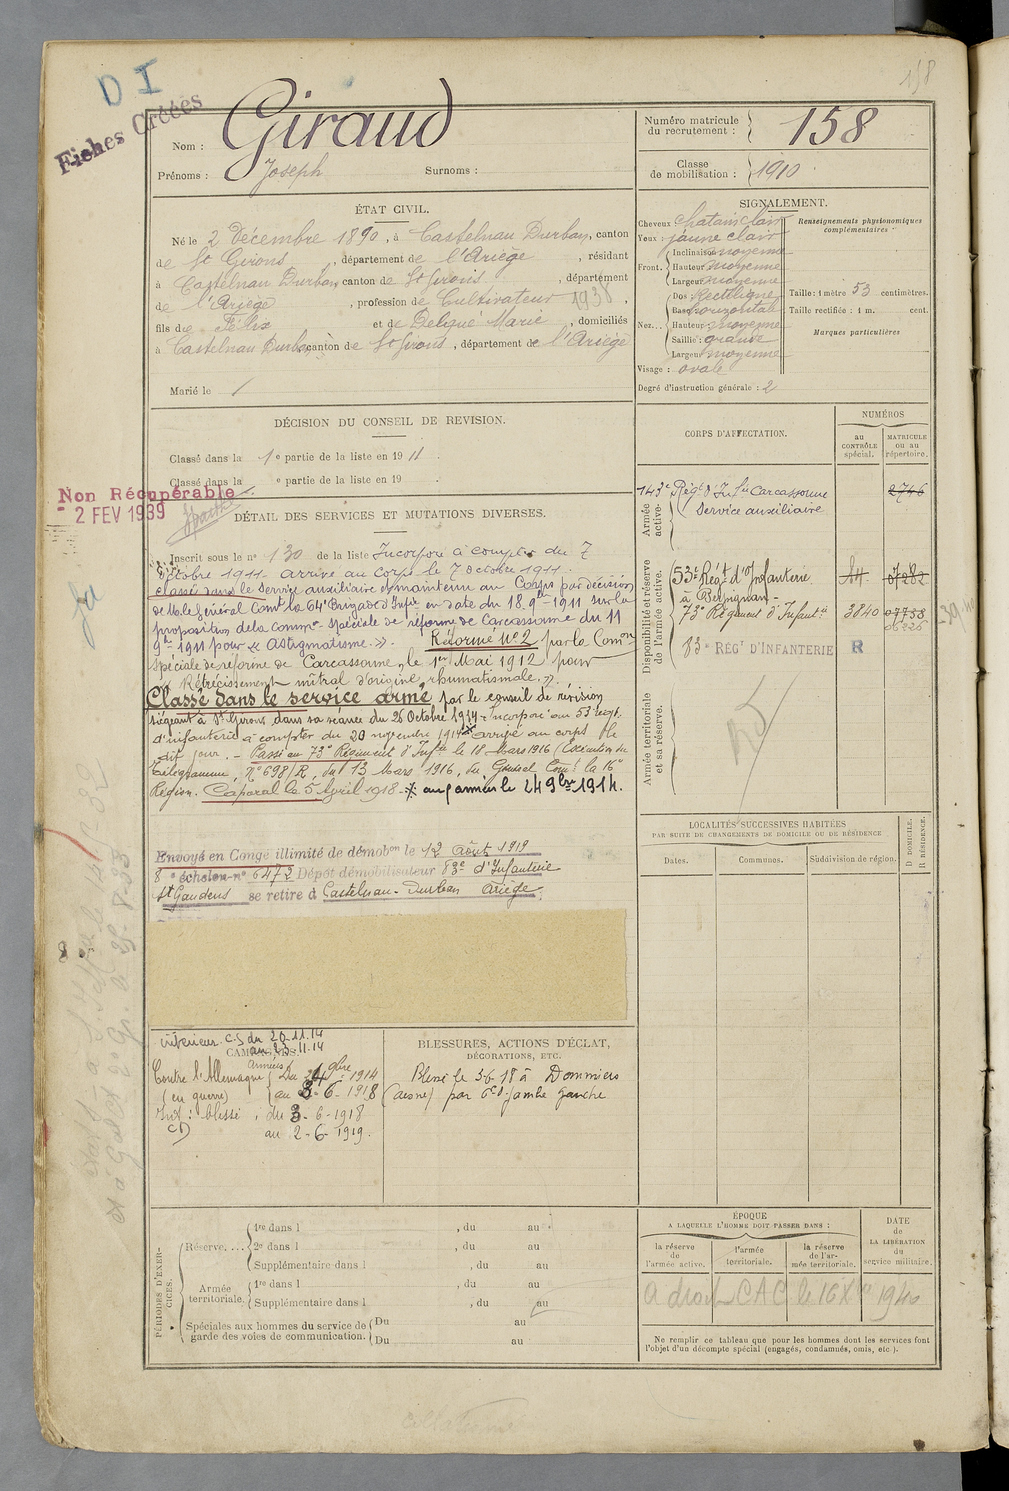 158
D I
Fiches Créées
Nom : Giraud
Prénoms : Joseph Surnoms :
Numéro matricule du recrutement : 158
Classe de mobilisation : 1910
ÉTAT CIVIL.
Né le 2 Décembre 1890, à Castelnau Durban, canton
de St Girons, département de l'Ariège, résidant
à Castelnau Durban canton de St Girons, département
de l'Ariège, profession de Cultivateur 1938,
fils de Félix et de Marie, domiciliés
à Castelnau Durban canton de St Girons, département de l'Ariège
Marié le /
SIGNALEMENT.
Cheveux chatain clair
Yeux : jaune clair
Front. Inclinaison moyenne
Hauteur moyenne
Largeur moyenne
Nez... Dos Rectiligne
Base horizontale
Hauteur moyenne
Saillie : grande
Largeur moyenne
Visage : ovale
Renseignements physionomiques complémentaires
Taille : 1 mètre 53 centimètres.
Taille rectifiée : 1 m. cent.
Marques particulières
Degré d'instruction générale : 2
DÉCISION DU CONSEIL DE REVISION.
Classé dans la 1e partie de la liste en 1911.
Classé dans la e partie de la liste en 19
Non Récupérable
- 2 FEV 1939
DÉTAIL DES SERVICES ET MUTATIONS DIVERSES.
Inscrit sous le no 130 de la liste Incorporé à compter du 7
Octobre 1911 arrivé au corps le 7 octobre 1911.
Classé dans le service auxiliaire et maintenu au Corps par décision
de M. le Général Comt la 64e Brigade d'Infie en date du 18 9bre 1911 sur la
proposition de la Common spéciale de réforme de Carcassonne du 11
9bre 1911 pour « Astigmatisme. » Réformé No 2 par la Comon
spéciale de réforme de Carcassonne, le 1er Mai 1912 pour
« Rétrécissement mitral d'origine rhumatismale. »
Classé dans le service armé par le conseil de révision
siégeant à St Girons dans sa séance du 26 Octobre 1914. Incorporé au 53e régt
d'infanterie à compter du 20 novembre 1914 arrivé au corps le
dit jour. - Passé au 73e Régiment d'Inftie le 18 Mars 1916 (Exécution du
télégramme, No 698/R, du 13 Mars 1916, du Général Comt la 16e
Région. Caporal le 5 Avril 1918. aux armées le 24 9bre 1914.
Envoyé en Congé illimité de démobon le 12 Août 1919
8e échelon no 6472 Dépôt démobilisateur 83e d'Infanterie
St Gaudens se retire à Castelnau-Durban Ariège
CORPS D'AFFECTATION.
NUMÉROS
au CONTRÔLE spécial.
MATRICULE ou au répertoire.
Armée active.
143e Régt d'Infie Carcassonne 2746
Service auxiliaire
Disponibilité et réserve de l'armée active.
53e Régt d'Infanterie
à Perpignan
73e Régiment d'Infantie 3840
83e RÉGt D'INFANTERIE R
Armée territoriale et sa réserve.
LOCALITÉS SUCCESSIVES HABITÉES
PAR SUITE DE CHANGEMENTS DE DOMICILE OU DE RÉSIDENCE
Dates.
Communes.
Subdivision de région.
D DOMICILE.
R RÉSIDENCE.
intérieur C.S du 20.11.14
au 23.11.14
CAMPAGNES.
Contre l'Allemagne Armées du 24 9bre 1914
(en guerre) au 3-6-1918
Int : blessé, du 3-6-1918
CD au 2-6-1919.
BLESSURES, ACTIONS D'ÉCLAT,
DÉCORATIONS, ETC.
Blessé le 3-6-18 à Dommiers
(Aisne) par éclat jambe gauche
PÉRIODES D'EXERCICES.
Réserve....
1re dans l , du au
2e dans l , du au
Supplémentaire dans l , du au
Armée territoriale.
1re dans l , du au
Supplémentaire dans l , du au
Spéciales aux hommes du service de garde des voies de communication.
Du au
Du au
ÉPOQUE
A LAQUELLE L'HOMME DOIT PASSER DANS :
la réserve de l'armée active.
l'armée territoriale.
la réserve de l'armée territoriale.
DATE de LA LIBÉRATION du service militaire.
a droit CAC le 16 Xbre 1940
Ne remplir ce tableau que pour les hommes dont les services font
l'objet d'un décompte spécial (engagés, condamnés, omis, etc.).